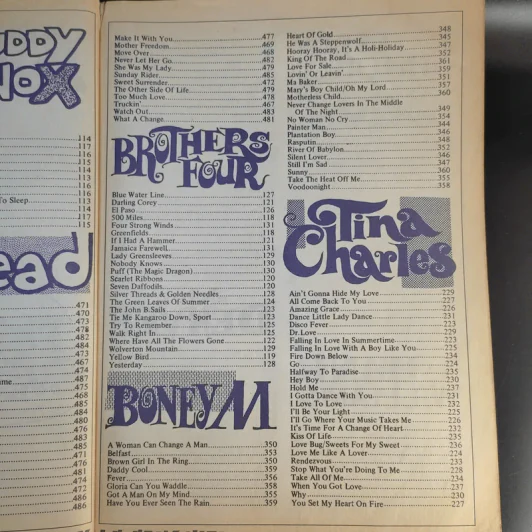 UDDY
NOX
114
117
116
115
114
113
116
To Sleep
113
114
117
115
ead
471
470
473
478
482
484
473
467
474
ime
487
475
468
485
484
480
484
476
476
483
472
477
482
486
486
Make It With You 477
Mother Freedom 469
Move Over 468
Never Let Her Go 482
She Was My Lady 479
Sunday Rider 485
Sweet Surrender 472
The Other Side Of Life 479
Too Much Love 478
Truckin' 467
Watch Out 483
What A Change 481
BROTHERS
FOUR
Blue Water Line 127
Darling Corey 121
El Paso 126
500 Miles 118
Four Strong Winds 131
Greenfields 118
If I Had A Hammer 121
Jamaica Farewell 131
Lady Greensleeves 129
Nobody Knows 130
Puff (The Magic Dragon) 130
Scarlet Ribbons 120
Seven Daffodils 120
Silver Threads & Golden Needles 128
The Green Leaves Of Summer 124
The John B.Sails 123
Tie Me Kangaroo Down, Sport 123
Try To Remember 125
Walk Right In 125
Where Have All The Flowers Gone 122
Wolverton Mountain 129
Yellow Bird 119
Yesterday 128
BONEY M
A Woman Can Change A Man 350
Belfast 353
Brown Girl In The Ring 350
Daddy Cool 359
Fever 356
Gloria Can You Waddle 358
Got A Man On My Mind 355
Have You Ever Seen The Rain 359
Heart Of Gold 348
He Was A Steppenwolf 345
Hooray Hooray, It's A Holi-Holiday 347
King Of The Road 352
Love For Sale 361
Lovin' Or Leavin' 359
Ma Baker 351
Mary's Boy Child/Oh My Lord 357
Motherless Child 360
Never Change Lovers In The Middle
Of The Night 349
No Woman No Cry 354
Painter Man 344
Plantation Boy 346
Rasputin 348
River Of Babylon 352
Silent Lover 346
Still I'm Sad 347
Sunny 360
Take The Heat Off Me 355
Voodoonight 358
Tina
Charles
Ain't Gonna Hide My Love 229
All Come Back To You 227
Amazing Grace 226
Dance Little Lady Dance 231
Disco Fever 223
Dr.Love 229
Falling In Love In Summertime 223
Falling In Love With A Boy Like You 225
Fire Down Below 234
Go 224
Halfway To Paradise 235
Hey Boy 230
Hold Me 237
I Gotta Dance With You 231
I Love To Love 232
I'll Be Your Light 225
I'll Go Where Your Music Takes Me 226
It's Time For A Change Of Heart 232
Kiss Of Life 235
Love Bug/Sweets For My Sweet 236
Love Me Like A Lover 224
Rendezvous 233
Stop What You're Doing To Me 228
Take All Of Me 234
When You Got Love 237
Why 230
You Set My Heart On Fire 227